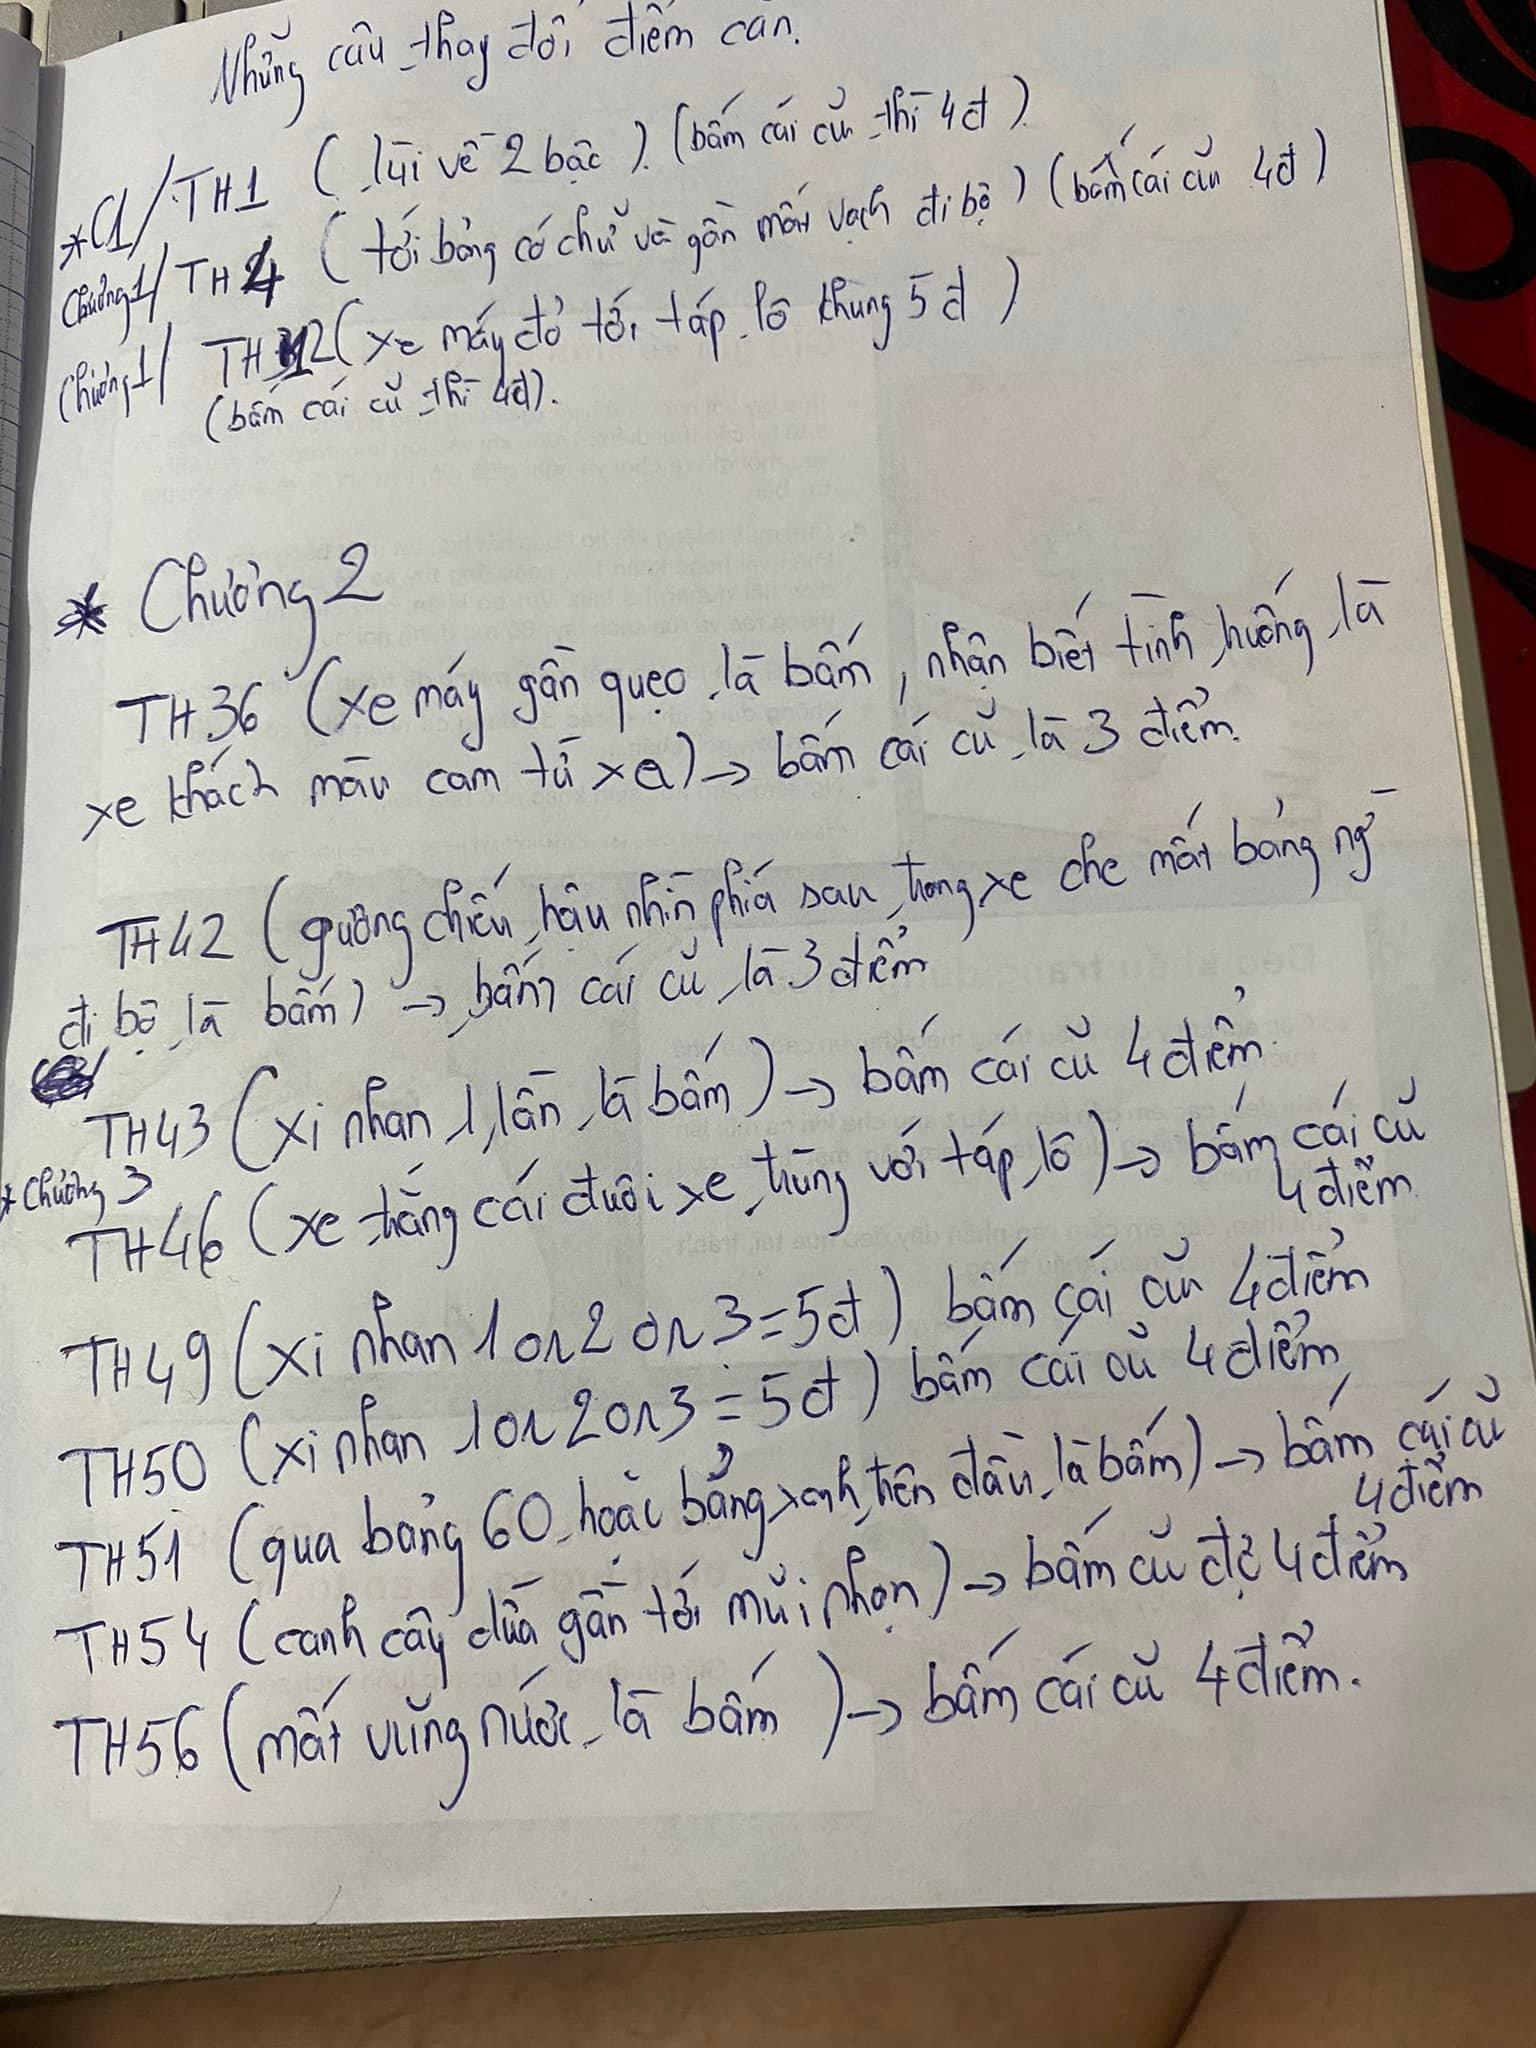 Những câu thay đổi điểm căn.
*C1/TH1 (lùi về 2 bậc). (bấm cái cũ thì 4đ).
Chương1/TH4 (tới bảng có chữ và gần mất vạch đi bộ) (bấm cái cũ 4đ)
Chương1/ TH12 (xe máy đỏ tới táp lô khung 5đ)
(bấm cái cũ thì 4đ).
* Chương 2
TH36 (xe máy gần quẹo là bấm, nhận biết tình huống là
xe khách màu cam từ xa) → bấm cái cũ là 3 điểm.
TH42 (gương chiếu hậu nhìn phía sau trong xe che mất bảng ng
đi bộ là bấm) → bấm cái cũ là 3 điểm
TH43 (xi nhan 1 lần là bấm) → bấm cái cũ 4 điểm.
* Chương 3
TH46 (xe trắng cái đuôi xe trùng với táp lô) → bấm cái cũ
4 điểm
TH49 (xi nhan 1 or 2 or 3 = 5đ) bấm cái cũ 4 điểm
TH50 (xi nhan 1 or 2 or 3 = 5đ) bấm cái cũ 4 điểm
TH51 (qua bảng 60 hoặc bảng xanh trên đầu là bấm) → bấm cái cũ
4 điểm
TH54 (canh cây dừa gần tới mũi nhọn) → bấm cũ đc 4 điểm
TH56 (mất vũng nước là bấm) → bấm cái cũ 4 điểm.